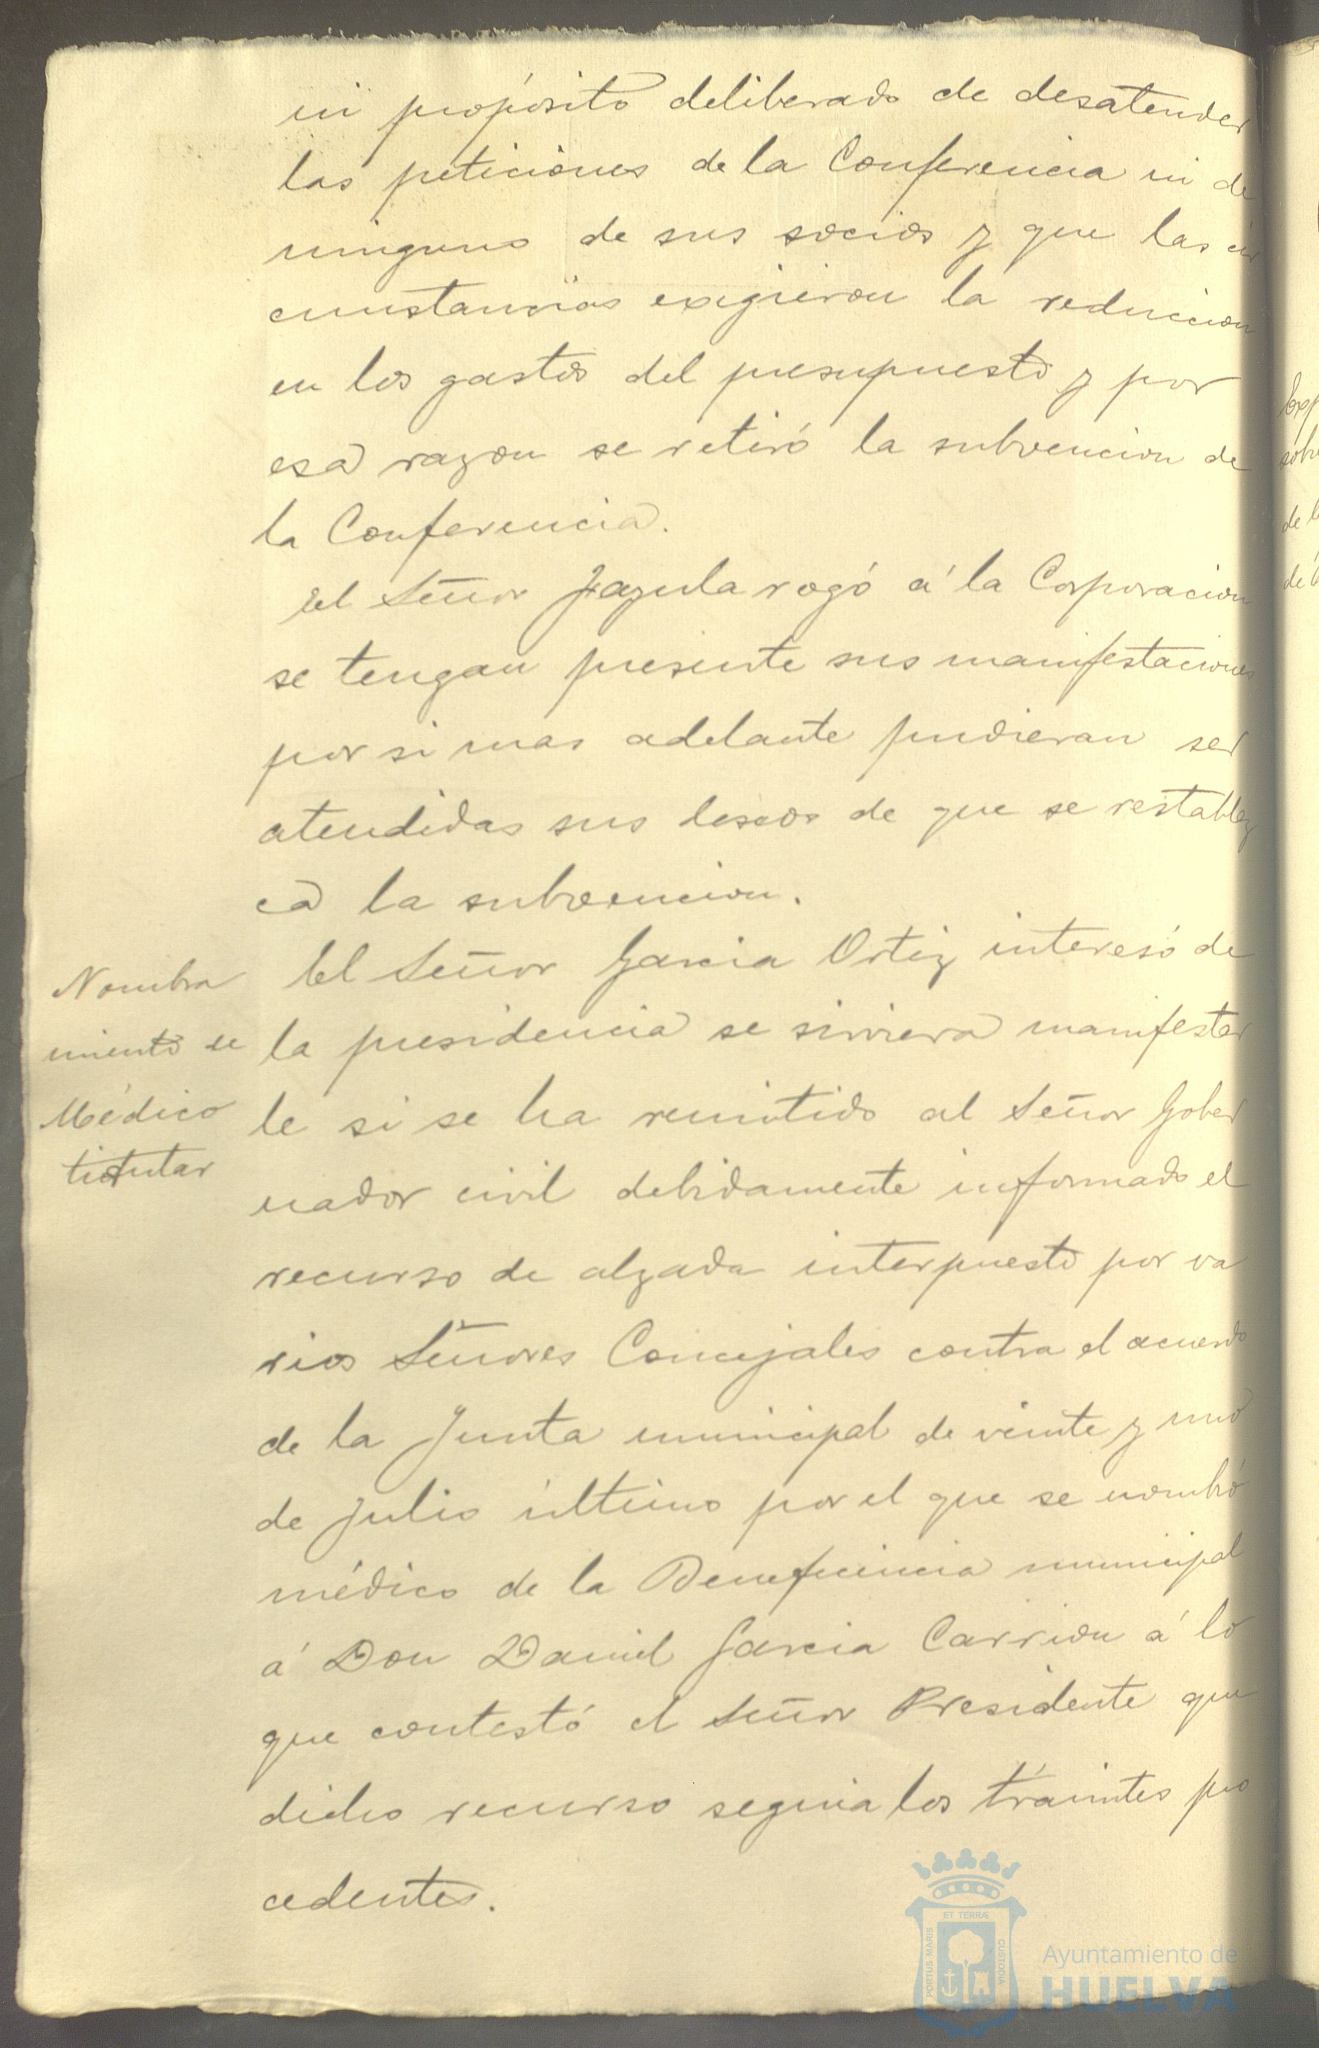 ni propósito deliberado de desatender
las peticiones de la Conferencia ni de
ninguno de sus socios y que las cir
cunstancias exigieron la reduccion
en los gastos del presupuesto y por
esa razon se retiró la subvencion de
la Conferencia.
El Señor Jazula rogó á la Corporacion
se tengan presente sus manifestaciones
por si mas adelante pudieran ser
atendidas sus deseos de que se restablez
ca la subvencion.
Nombra
miento de
Médico
titutar
El Señor Garcia Ortiz interesó de
la presidencia se sirviera manifestar
le si se ha remitido al Señor Gober
nador civil debidamente informado el
recurso de alzada interpuesto por va
rios Señores Concejales contra el acuerdo
de la Junta municipal de veinte y uno
de Julio último por el que se nombró
médico de la Beneficencia municipal
á Don Daniel Garcia Carrion á lo
que contestó el Señor Presidente que
dicho recurso seguia los trámites pro
cedentes.
PORTUS MARIS
ET TERRÆ
CUSTODIA
Ayuntamiento de
HUELVA